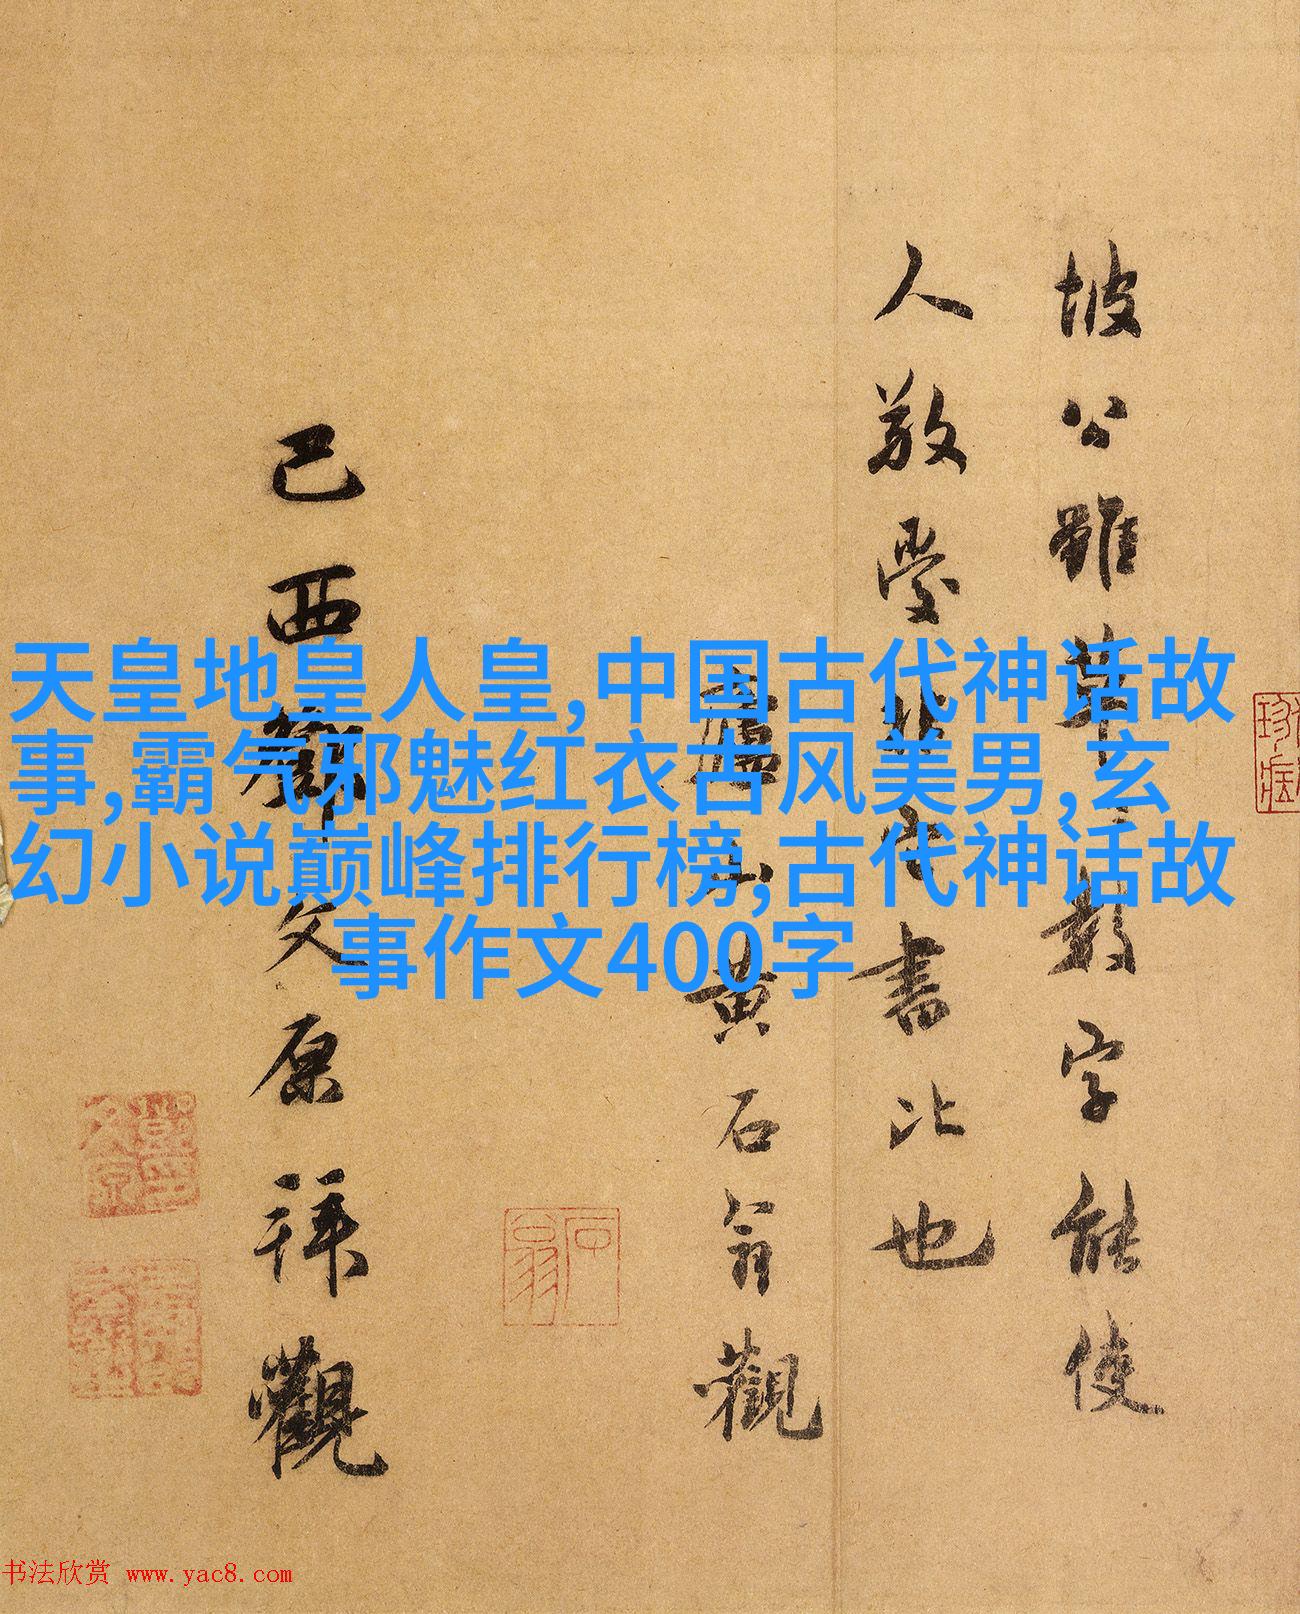 天皇地皇人皇,中国古代神话故
事,霸气邪魅红衣古风美男,玄
幻小说巅峰排行榜,古代神话故
事作文400字
坡公雖草〻數字能使
人敬愛非它書比也
廬山黄石翁觀
己酉鄧文原拜觀
石翁
书法欣赏 www.yac8.com